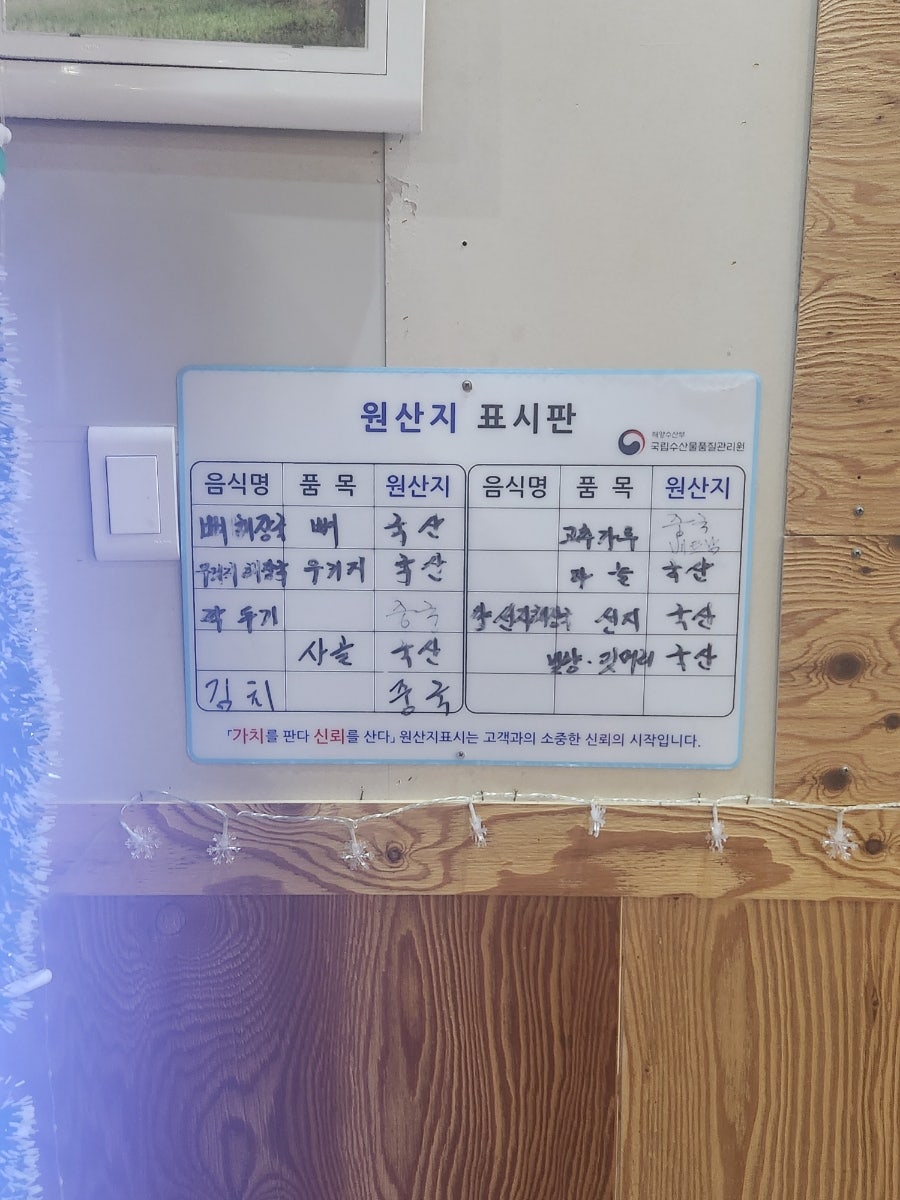 원산지 표시판
해양수산부
국립수산물품질관리원
음식명 품목 원산지
뼈해장국 뼈 국산
우거지 국산
깍두기 중국
사골 국산
김치 중국
음식명 품목 원산지
고추가루 중국
마늘 국산
선지 국산
국산
「가치를 판다 신뢰를 산다」 원산지표시는 고객과의 소중한 신뢰의 시작입니다.